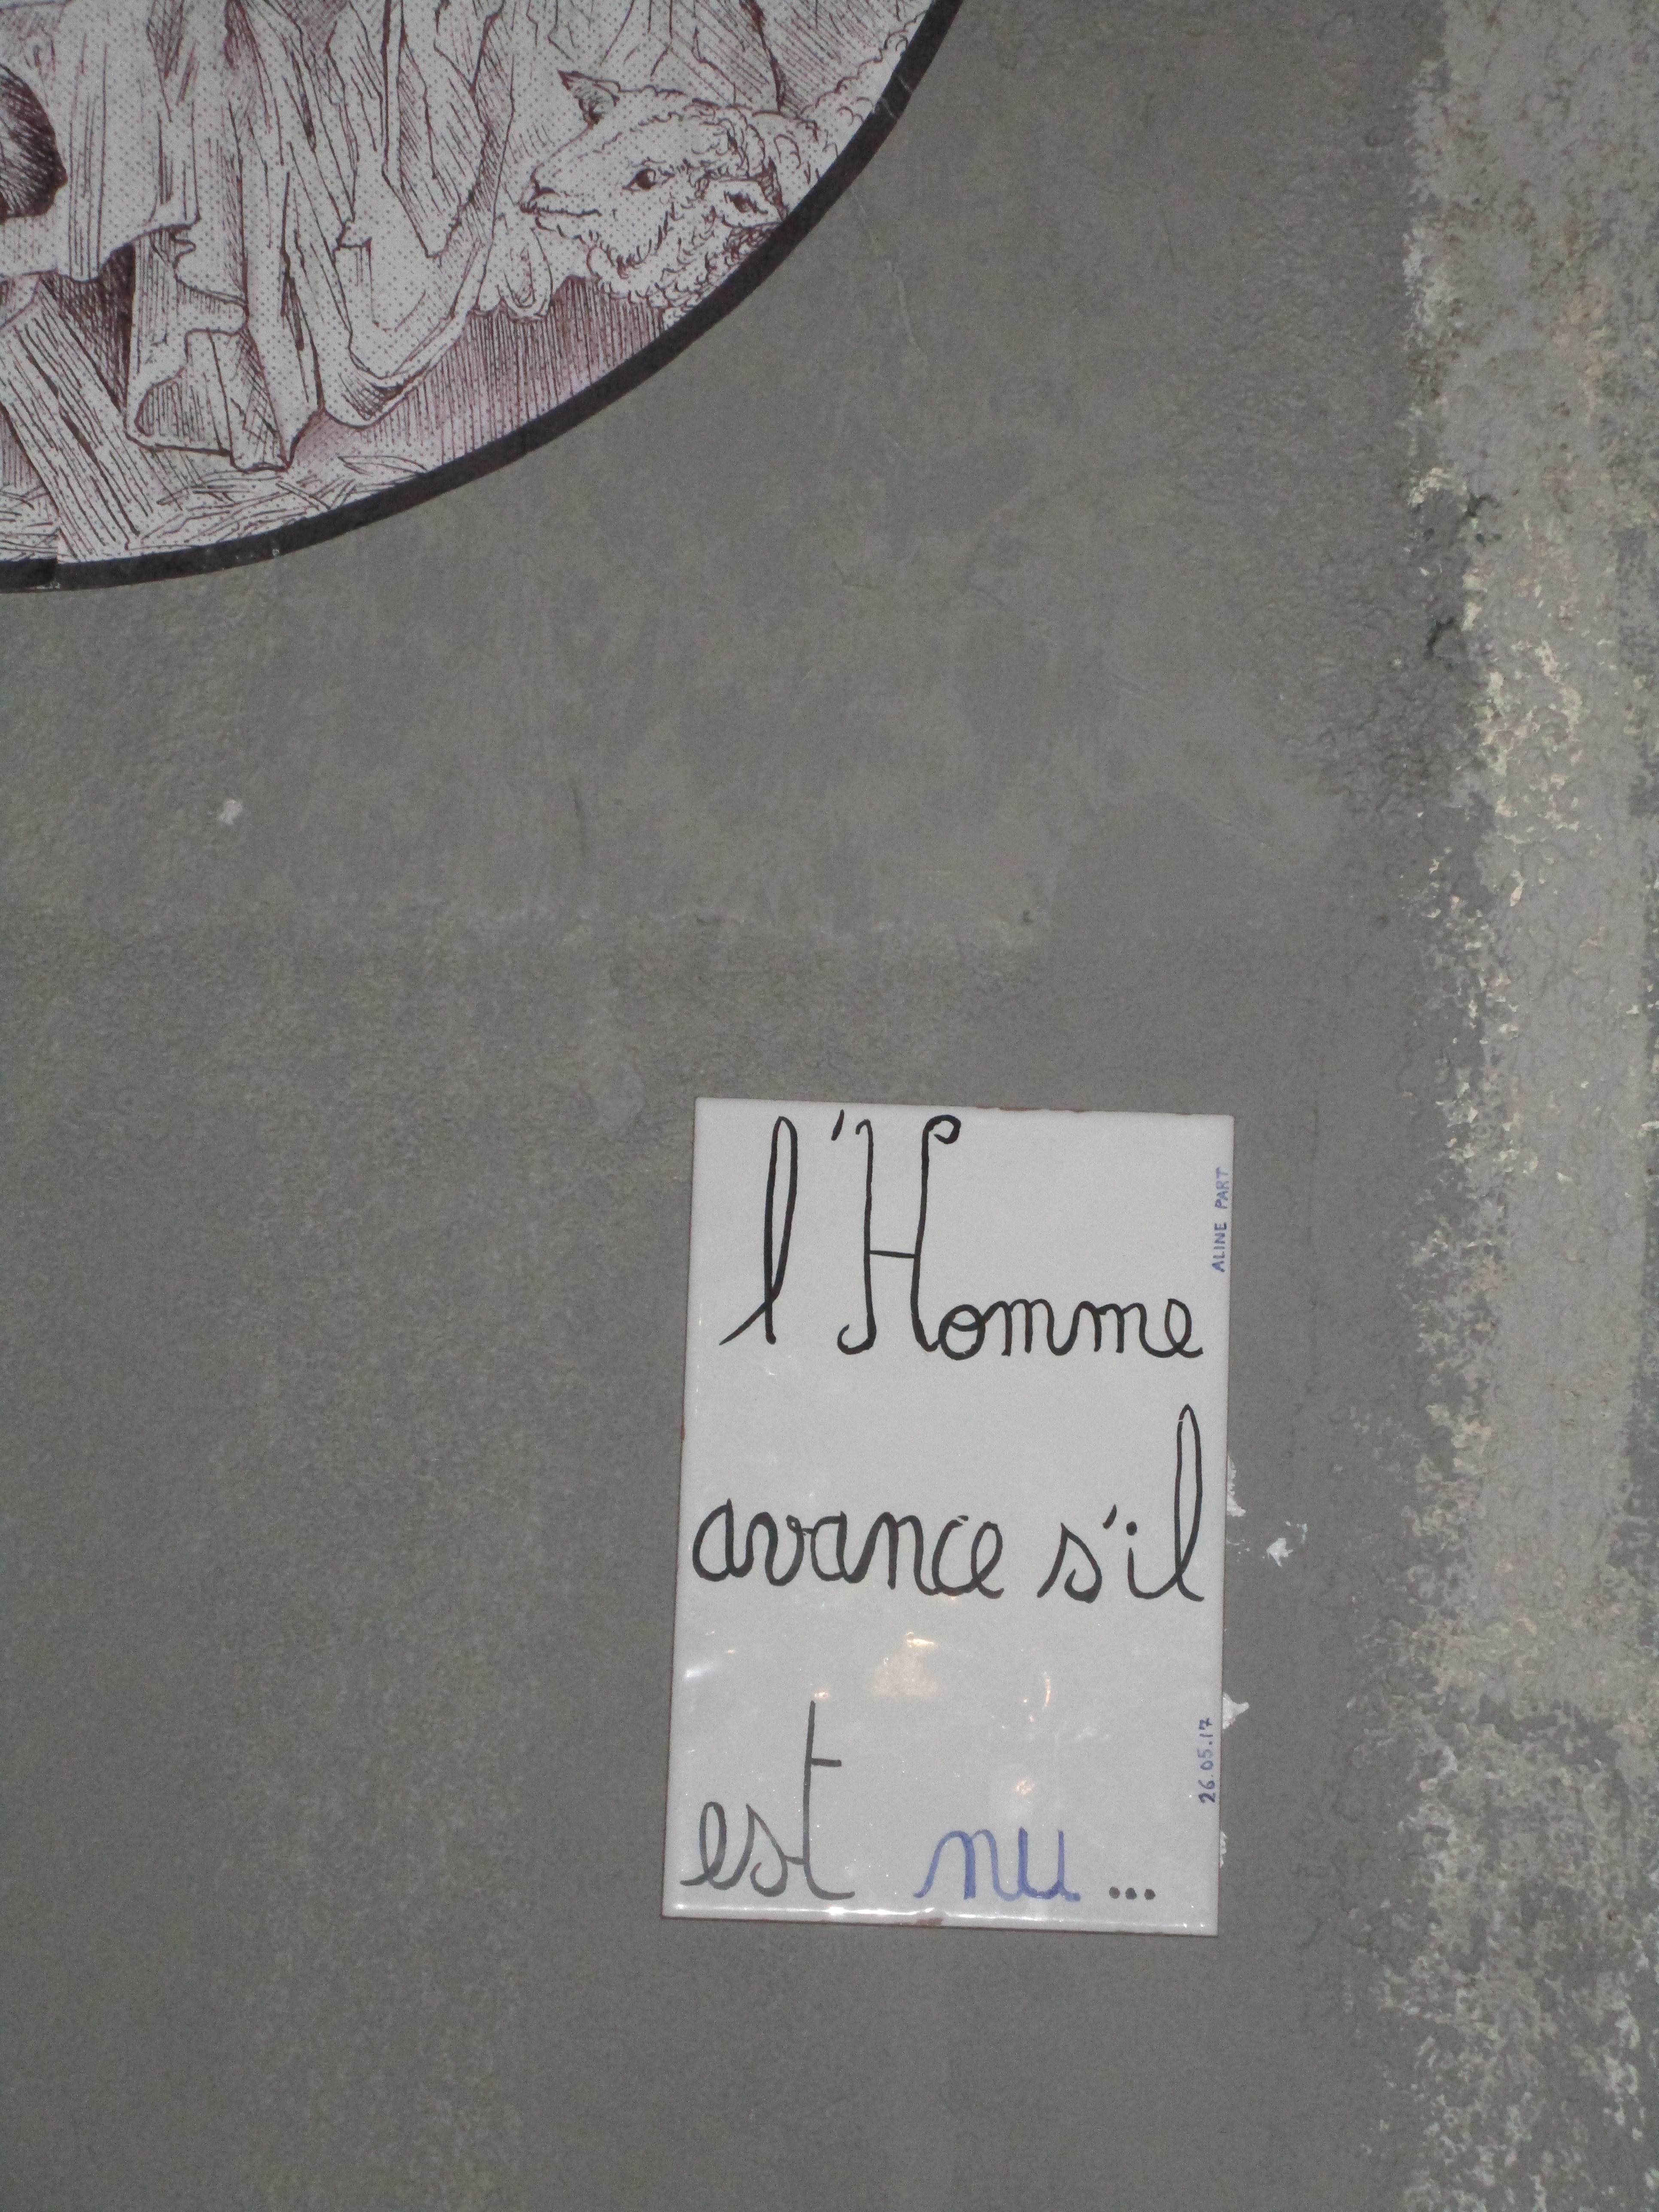 l'Homme
avance s'il
est nu...
ALINE PART
26.05.17